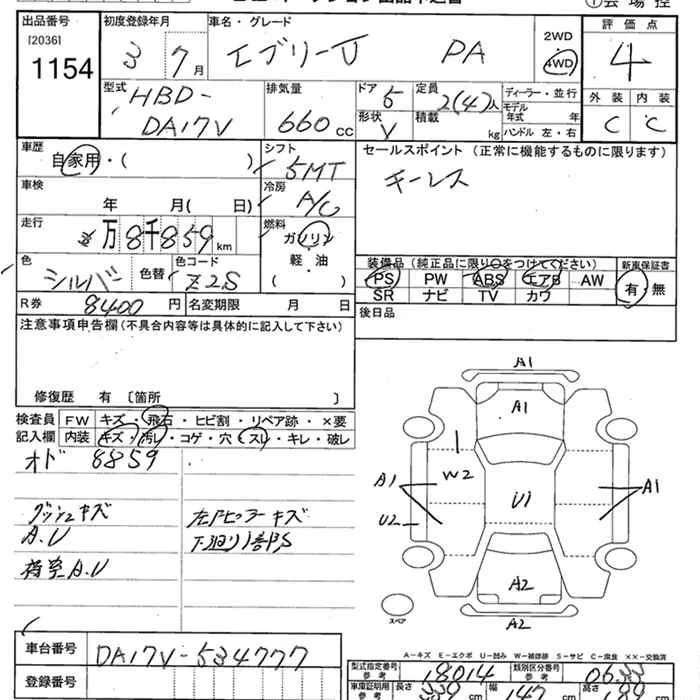 出品番号 初度登録年月 車名・グレード 2WD 評価点
[2036] 3 7月 エブリーJ PA 4WD 4
1154
型式 HBD-DA17V 排気量 660cc ドア 5 定員 2(4)人 ディーラー・並行 外装 内装
形状 V 積載 kg モデル年式 年 C C
ハンドル 左・右
車歴 自家用・( ) シフト 5MT セールスポイント (正常に機能するものに限ります)
キーレス
車検 年 月( 日) 冷房 A/C
走行 万8千859km 燃料 ガソリン 軽・油 ( )
装備品(純正品に限り○をつけてください) 新車保証書
色 シルバー 色替 色コード Z2S
PS PW ABS エアB AW 有・無
SR ナビ TV カワ
R券 8400円 名変期限 月 日 後日品
注意事項申告欄(不具合内容等は具体的に記入して下さい)
修復歴 有 〔箇所 〕
検査員 FW キズ・飛石・ヒビ割・リペア跡・×要
記入欄 内装 キズ・汚レ・コゲ・穴・スレ・キレ・破レ
オド 8859
ダッシュキズ 左Fピラーキズ
A.U 下廻り1部PS
荷室A.U
A1
A1
W2
A1 U1 A1
U2
A2
スペア A2
A-キズ E-エクボ U-凹み W-補修跡 S-サビ C-腐食 ××-交換済
車台番号 DA17V-534777
登録番号
型式指定番号 参考 18014 類別区分番号 参考
車庫証明用 参考 長さ cm 幅 147 cm 高さ cm